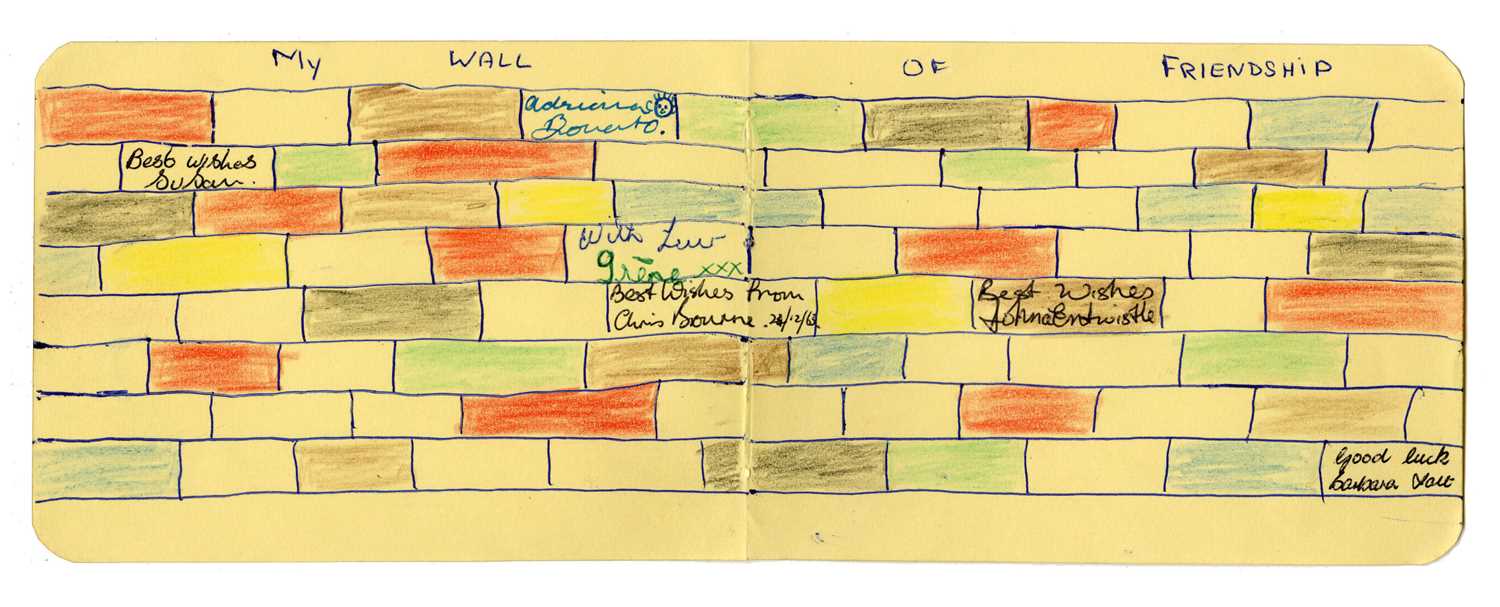 My WALL OF FRIENDSHIP
Best wishes
Susan.
With Luv
Irène xxx
Best Wishes From
Chris Bourne
Best Wishes
John Entwistle
Good luck
barbara